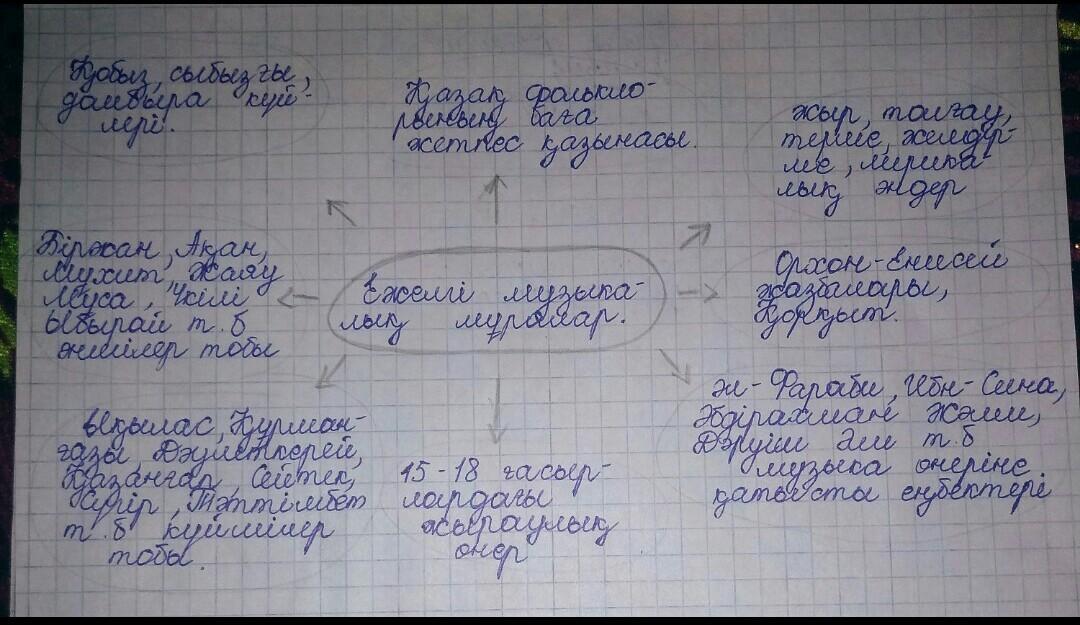 Қобыз, сыбызғы,
домбыра күй-
лері.
Қазақ фолькло-
рының баға
жетпес қазынасы.
жыр, толғау,
терме, желдір-
ме, лирика
лық әндер
Біржан, Ақан,
Мұхит, Жаяу
Мұса, Үкілі
Ыбырай т.б
әншілер тобы
Ежелгі музыка-
лық мұралар.
Орхон-Енисей
жазбалары,
Қорқыт.
Ықылас, Құрман-
ғазы Дәулеткерей,
Қазанғап, Сейтек,
Сүгір, Тәттімбет
т.б күйшілер
тобы.
15-18 ғасыр-
лардағы
жыраулық
өнер
әл-Фараби, Ибн-Сина,
Әбдірахман Жәми,
Дәруіш Әли т.б
музыка өнеріне
қатысты еңбектері